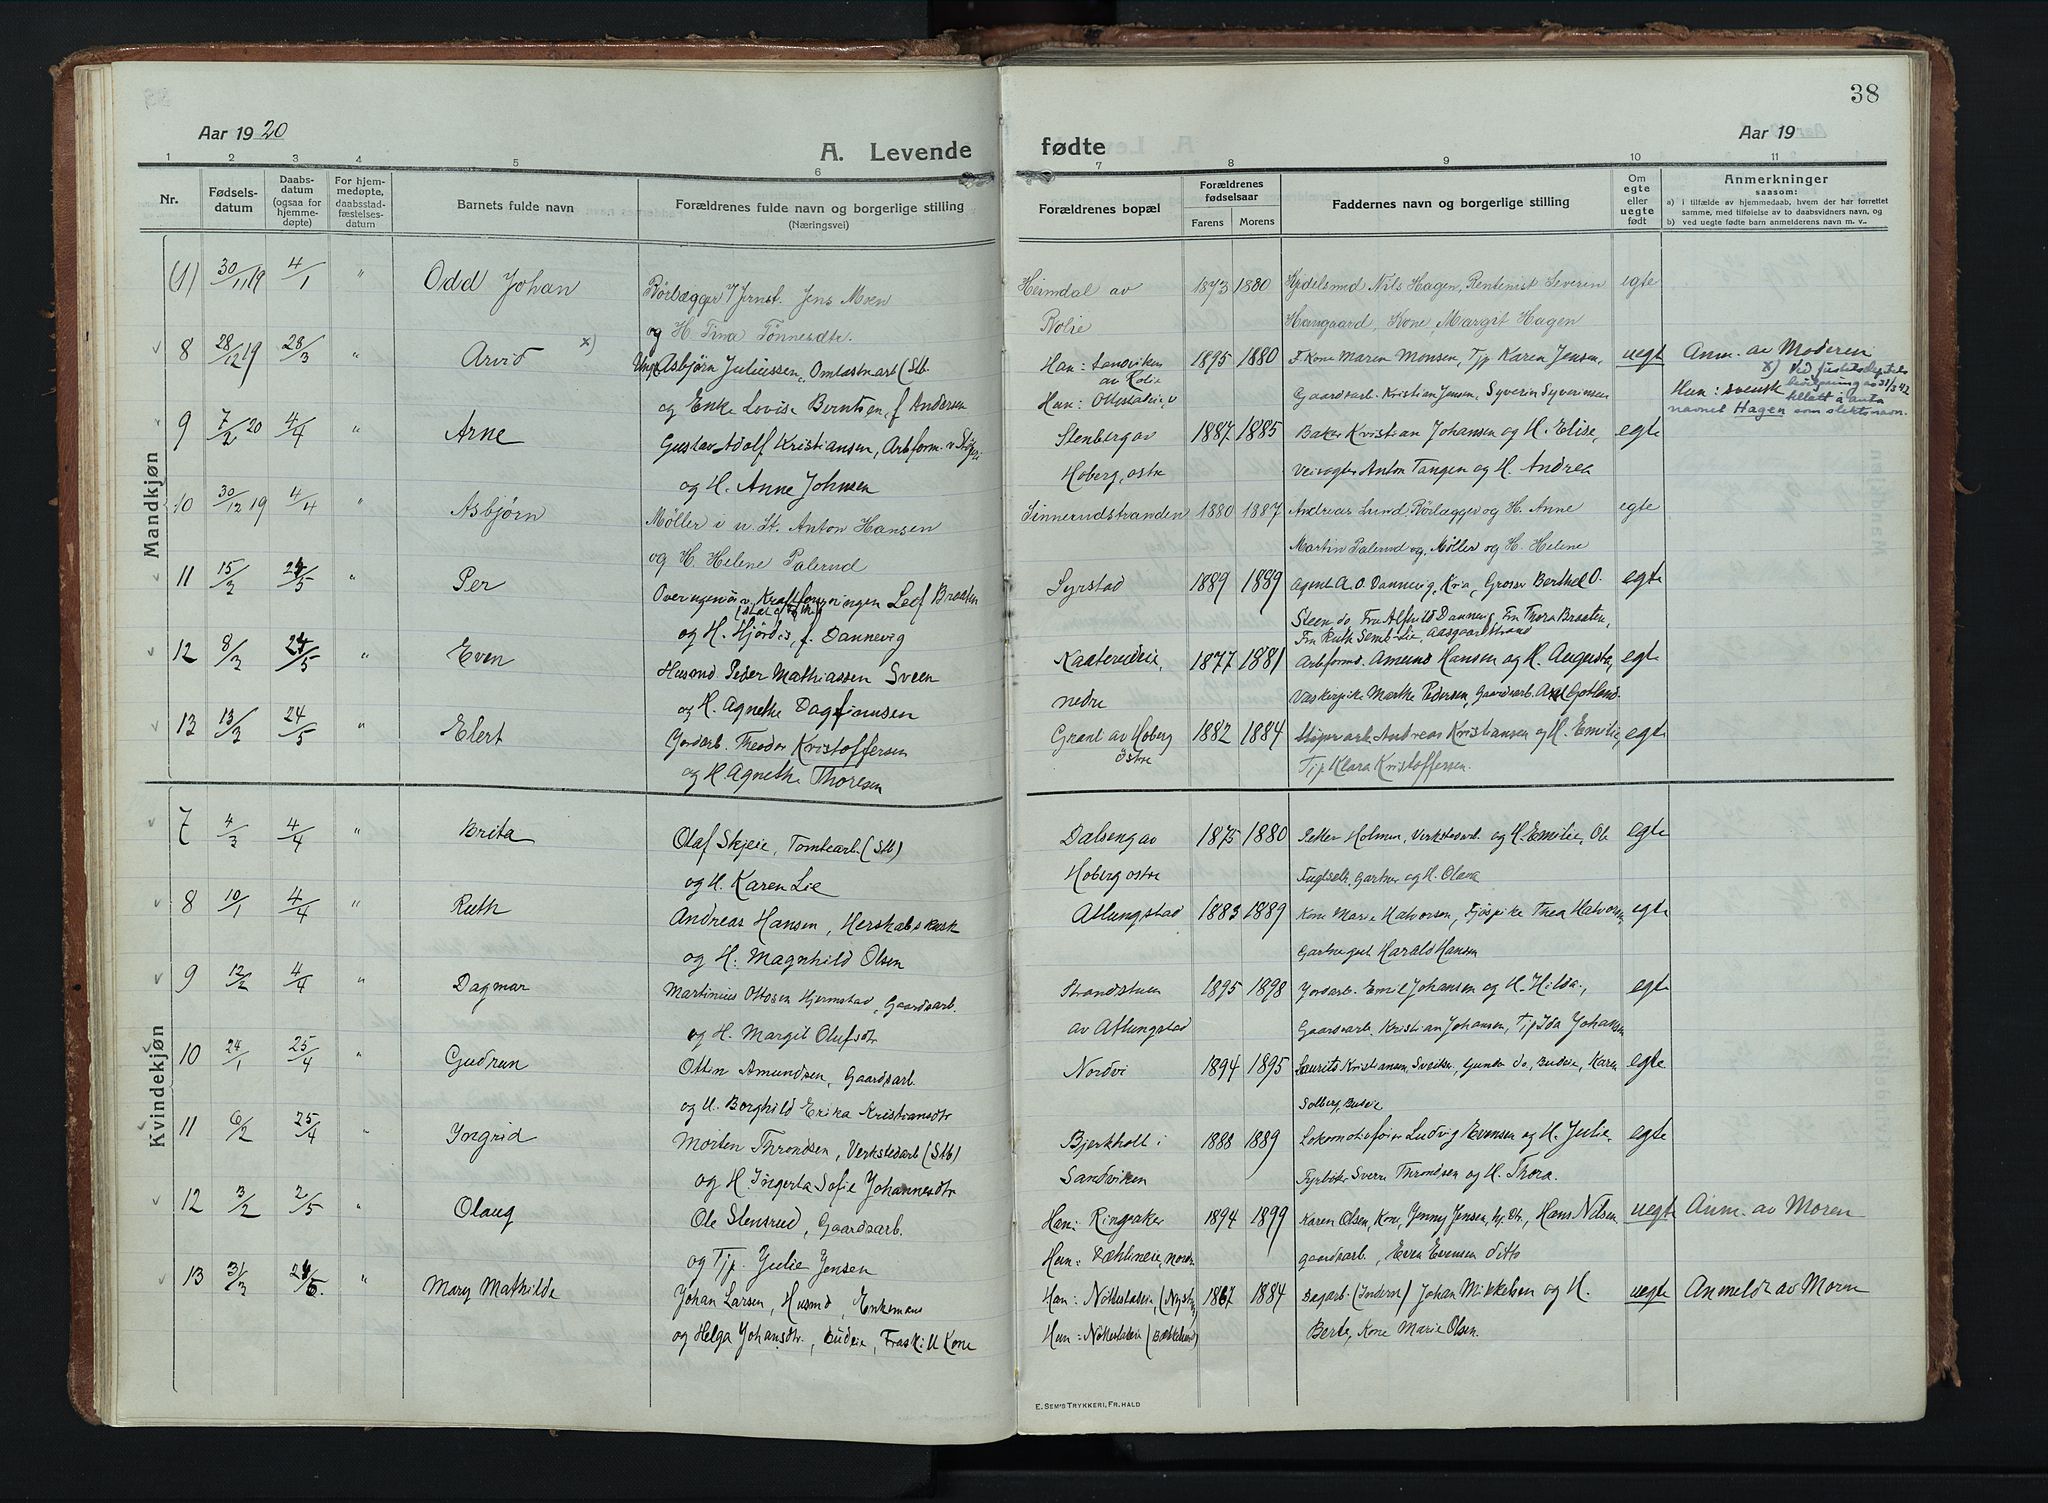 38
Aar 1920
Aar 19
A. Levende
fødte
1 2 3 4 5 6 7 8 9 10 11
Nr.
Fødsels-
datum
Daabs-
datum
(ogsaa for
hjemme-
døpte)
For hjem-
medøpte,
daabsstad-
fæstelses-
datum
Barnets fulde navn
Forældrenes fulde navn og borgerlige stilling
(Næringsvei)
Forældrenes bopæl
Forældrenes
fødselsaar
Farens Morens
Faddernes navn og borgerlige stilling
Om
egte
eller
uegte
født
Anmerkninger
saasom:
a) i tilfælde av hjemmedaab, hvem der har forrettet
samme, med tilføielse av to daabsvidners navn, og
b) ved uegte fødte barn anmelderens navn m. v..
Mandkjøn
(1) 30/11 19 4/1 " Odd Johan Rørlægger Jens Moen Heimdal av 1873 1880 Nils Hagen, Rentenist Severin egte
og H. Tina Tønnesdtr. Rolie Haugaard, Kone Margit Hagen
8 28/12 19 28/3 " Arvid x) Ungk. Asbjørn Juliussen, Omlastnarb (Stb. Han: Sandviken 1895 1880 F. Kone Maren Monsen, Tjp. Karen Jensen, uegt Anm. av Moderen
av Rolie
og Enke Lovise Berntsen, f. Andersen Gaardsarb. Kristian Jensen, Syverin Syverinsen Hun: svensk
x) Ved justisdeptets
bevilgning av 31/3 42
tillatt å anta
navnet Hagen som slektsnavn.
9 7/2 20 4/4 " Arne Gustav Adolf Kristiansen, Arbform. Stenberg av 1887 1885 Baker Kristian Johansen og H. Elise, egte
og H. Anne Johnsen Hoberg, østre Veivogter Anton Tangen og H. Andrea
10 30/12 19 4/4 " Asbjørn Møller i u. St. Anton Hansen Sinnerudstranden 1880 1887 Andreas Lund Rørlægger og H. Anne egte
og H. Helene Palerud Martin Palerud og Møller og H. Helene
11 15/2 24/5 " Per Overingeniør v. Kraftforsyningen Leif Braaten Syrstad 1889 1889 Agent A. O. Dannevig, Kria, Grosser Berthel O. egte
og H. Hjørdis, f. Dannevig Steen do, Fru Alfhild Dannevig, Fru Thora Braaten,
Fru Ruth Semb-Lie, Aasgaardstrand
12 8/3 24/5 " Even Husmd. Peder Mathiassen Sveen 1877 1881 Arbformd. Amund Hansen og H. Augusta, egte
og H. Agnethe Dagfinnsen nedre Vaskerpike Marthe Pedersen, Gaardsarb. Axel Gotland
13 13/3 24/5 " Elert Jordarb. Theodor Kristoffersen Grant av Hoberg 1882 1884 Andreas Kristiansen og H. Emilie, egte
østre
og H. Agnethe Thoresen Tjp. Klara Kristoffersen.
Kvindekjøn
7 4/3 4/4 " Brita Olaf Skjeie, Tomtearb. (Stb) Dalseng av 1875 1880 Petter Holmen, Verkstedarb. og H. Emilie, Ole egte
og H. Karen Lie Hoberg østre Fuglseth, Gartner og H. Olava
8 10/1 4/4 " Ruth Andreas Hansen, Herskabskusk Atlungstad 1883 1889 Kone Marie Halvorsen, Fjøspike Thea Halvorsen egte
og H. Magnhild Olsen Gartnergut Harald Hansen
9 12/2 4/4 " Dagmar Martinius Ottosen Hjermstad, Gaardsarb. Strandstuen 1895 1898 Jordarb. Emil Johansen og H. Hilda, egte
og H. Margit Olufsdtr av Atlungstad Gaardsarb. Kristian Johansen, Tjp Ida Johansen
10 24/1 25/4 " Gudrun Ottin Amundsen, Gaardsarb. Nordvi 1894 1895 Laurits Kristiansen, Sveiser, Gunda do, Budeie, Karen egte
og H. Borghild Erika Kristiansdtr Solberg, Budeie
11 6/2 25/4 " Yngrid Morten Throndsen, Verkstedarb (Stb) Bjerkholt i 1888 1889 Lokomotivfører Ludvig Evensen og H. Julie, egte
og H. Ingerta Sofie Johannesdtr Sandviken Fyrbøter Sverre Throndsen og H. Thora.
12 3/2 2/5 " Olaug Ole Stensrud, Gaardsarb. Han: Ringsaker 1894 1899 Karen Olsen, Kone, Jenny Jensen, Hans Nilsen uegte Anm. av Moren
og Tjp. Julie Jensen Hun: Dæhlineie, nordre gaardsarb., Even Evensen ditto
13 31/3 24/5. " Mary Mathilde Johan Larsen, Husmd, Enkemand Han: 1867 1884 Dagarb. (Inderst) Johan Mikkelsen og H. uegte Anmeldt av Moren
og Helga Johansdtr., Budeie, Frask. H Kone Hun: Berte, Kone Marie Olsen.
E. SEM'S TRYKKERI, FR. HALD